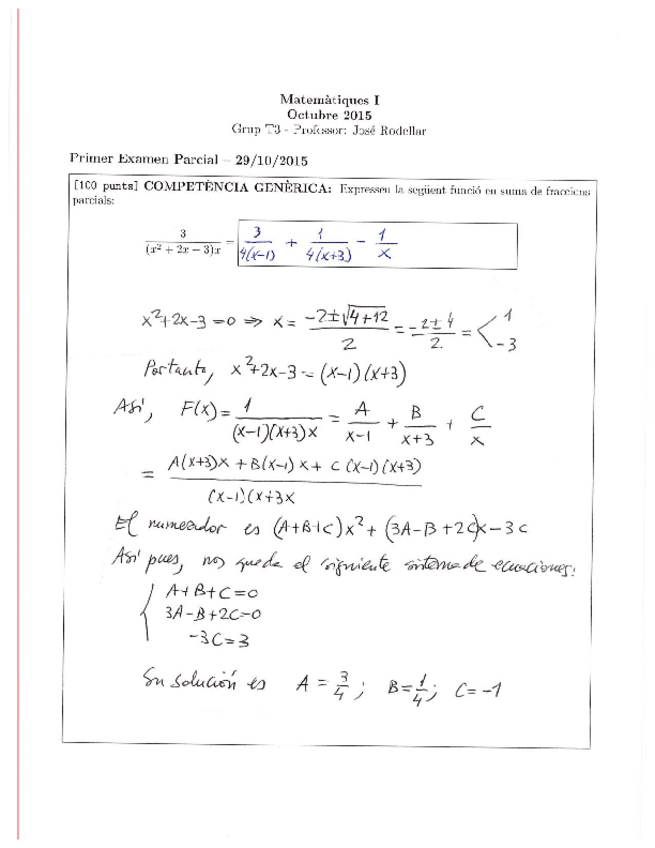 Matemàtiques I
Octubre 2015
Grup T3 - Professor: José Rodellar
Primer Examen Parcial – 29/10/2015
[100 punts] COMPETÈNCIA GENÈRICA: Expresseu la següent funció en suma de fraccions
parcials:
3/((x² + 2x − 3)x) = 3/(4(x-1)) + 1/(4(x+3)) − 1/x
x²+2x-3=0 ⇒ x = (-2±√(4+12))/2 = (-2±4)/2. = < 1 -3
Portanto, x²+2x-3 = (x-1)(x+3)
Así, F(x) = 1/((x-1)(x+3)x) = A/(x-1) + B/(x+3) + C/x
= (A(x+3)x + B(x-1)x + C(x-1)(x+3))/((x-1)(x+3x
El numerador es (A+B+C)x² + (3A-B+2C)x - 3C
Así pues, nos queda el siguiente sistema de ecuaciones:
{ A+B+C=0
3A-B+2C=0
-3C=3
Su solución es A = 3/4 ; B = 1/4 ; C = -1